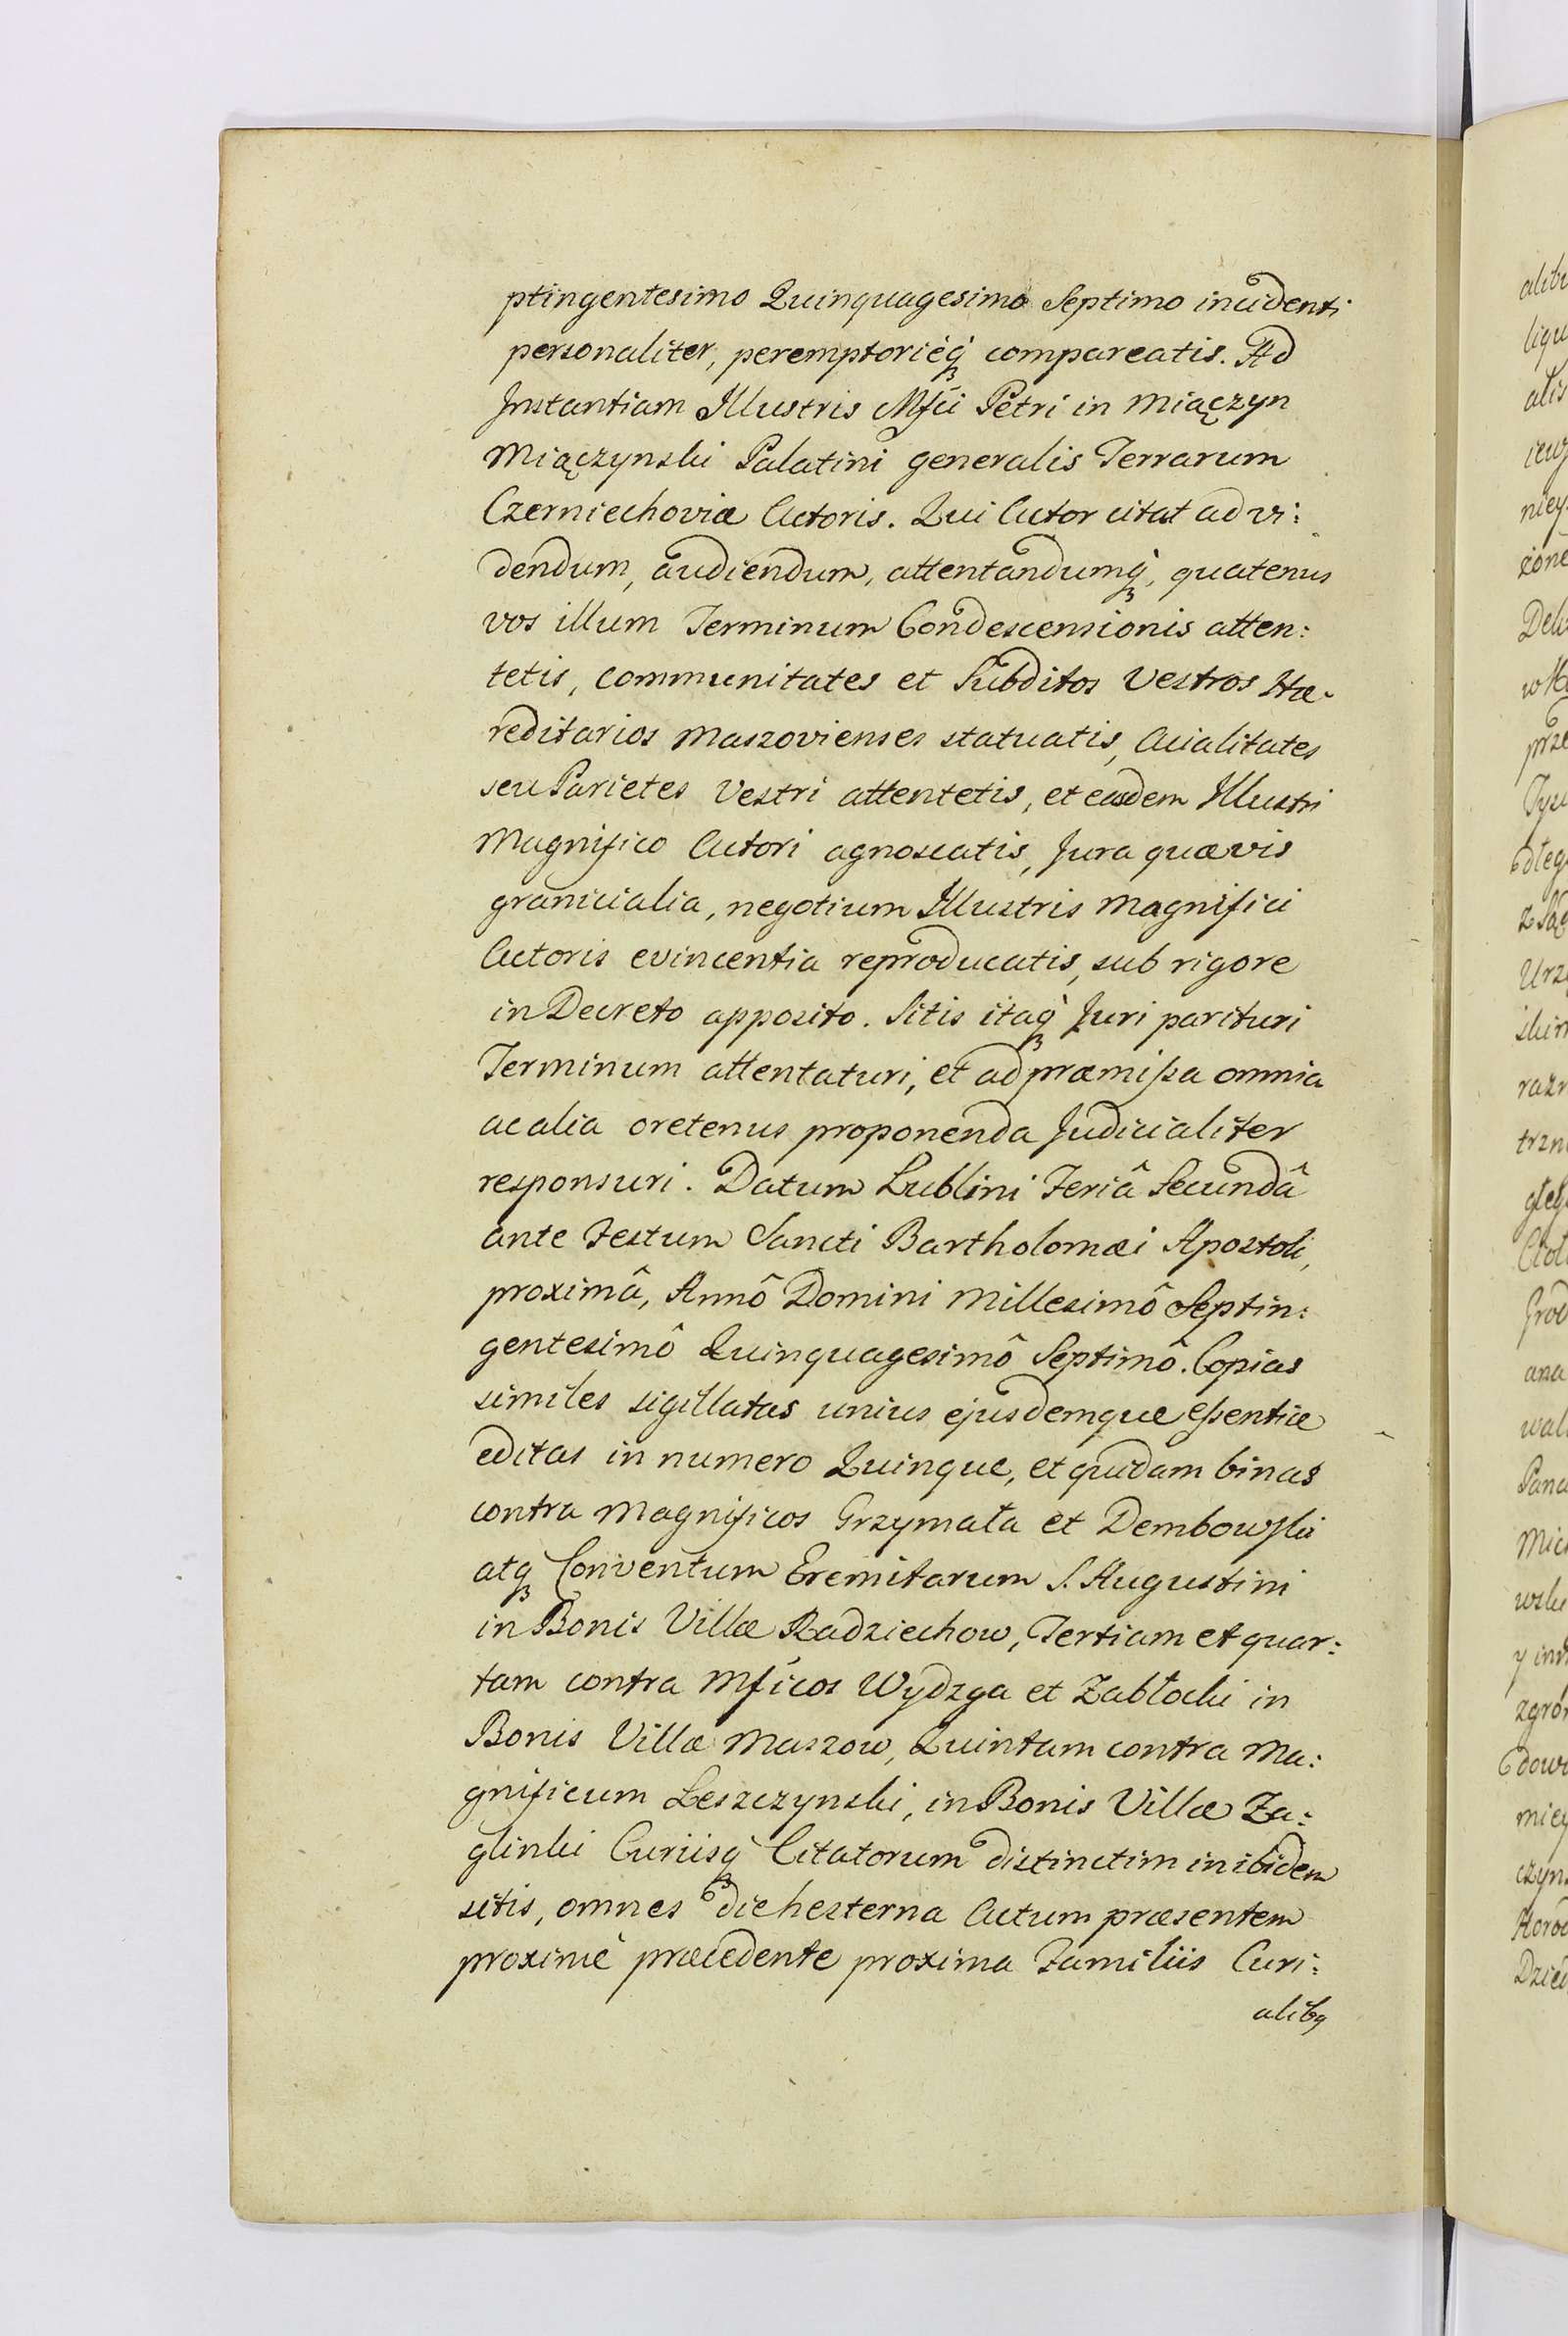 ptingentesimo Quinquagesimo Septimo incidenti
personaliter, peremptorieq̀ compareatis. Ad
Jnstantiam Jllustris Mfci Petri in Miączyn
Miączynski Palatini generalis Terrarum
Czerniechoviæ Actoris. Qui Actor citat ad vi:
dendum, audiendum, attentandumq̀, quatenus
vos illum Terminum Condescensionis atten:
tetis, Communitates et Subditos Vestros Hæ-
reditarios Maszovienses statuatis, Acialitates
seu Parietes Vestri attentetis, et easdem Jllustri
Magnifico Actori agnoscatis, Jura quævis
granicialia, negotium Jllustris Magnifici
Actoris evincentia reproducatis, sub rigore
in Decreto apposito. Sitis itaq̀ Juri parituri
Terminum attentaturi, et ad præmißa omnia
ac alia oretenus proponenda Judicialiter
responsuri. Datum Lublini Feriâ Secundâ
ante Festum Sancti Bartholomæi Apostoli,
proximâ, Annô Domini Millesimô Septin:
gentesimô Quinquagesimô Septimô. Copias
similes sigillatas unius ejusdemque eßentiæ
editas in numero Quinque, et quidam binas
contra Magnificos Grzymała et Dembowski
atq Conventum Eremitarum S. Augustini
in Bonis Villæ Radziechow, Tertiam et quar:
tam contra Mficos Wydzga et Zabłocki in
Bonis Villæ Maszow, Quintam contra Ma:
gnificum Leszczynski, in Bonis Villæ Za:
glinki Curiisq̀ Citatorum distinctim inibidem
sitis, omnes die hesterna Actum præsentem
proximè præcedente proxima Familiis Curi:
alibq